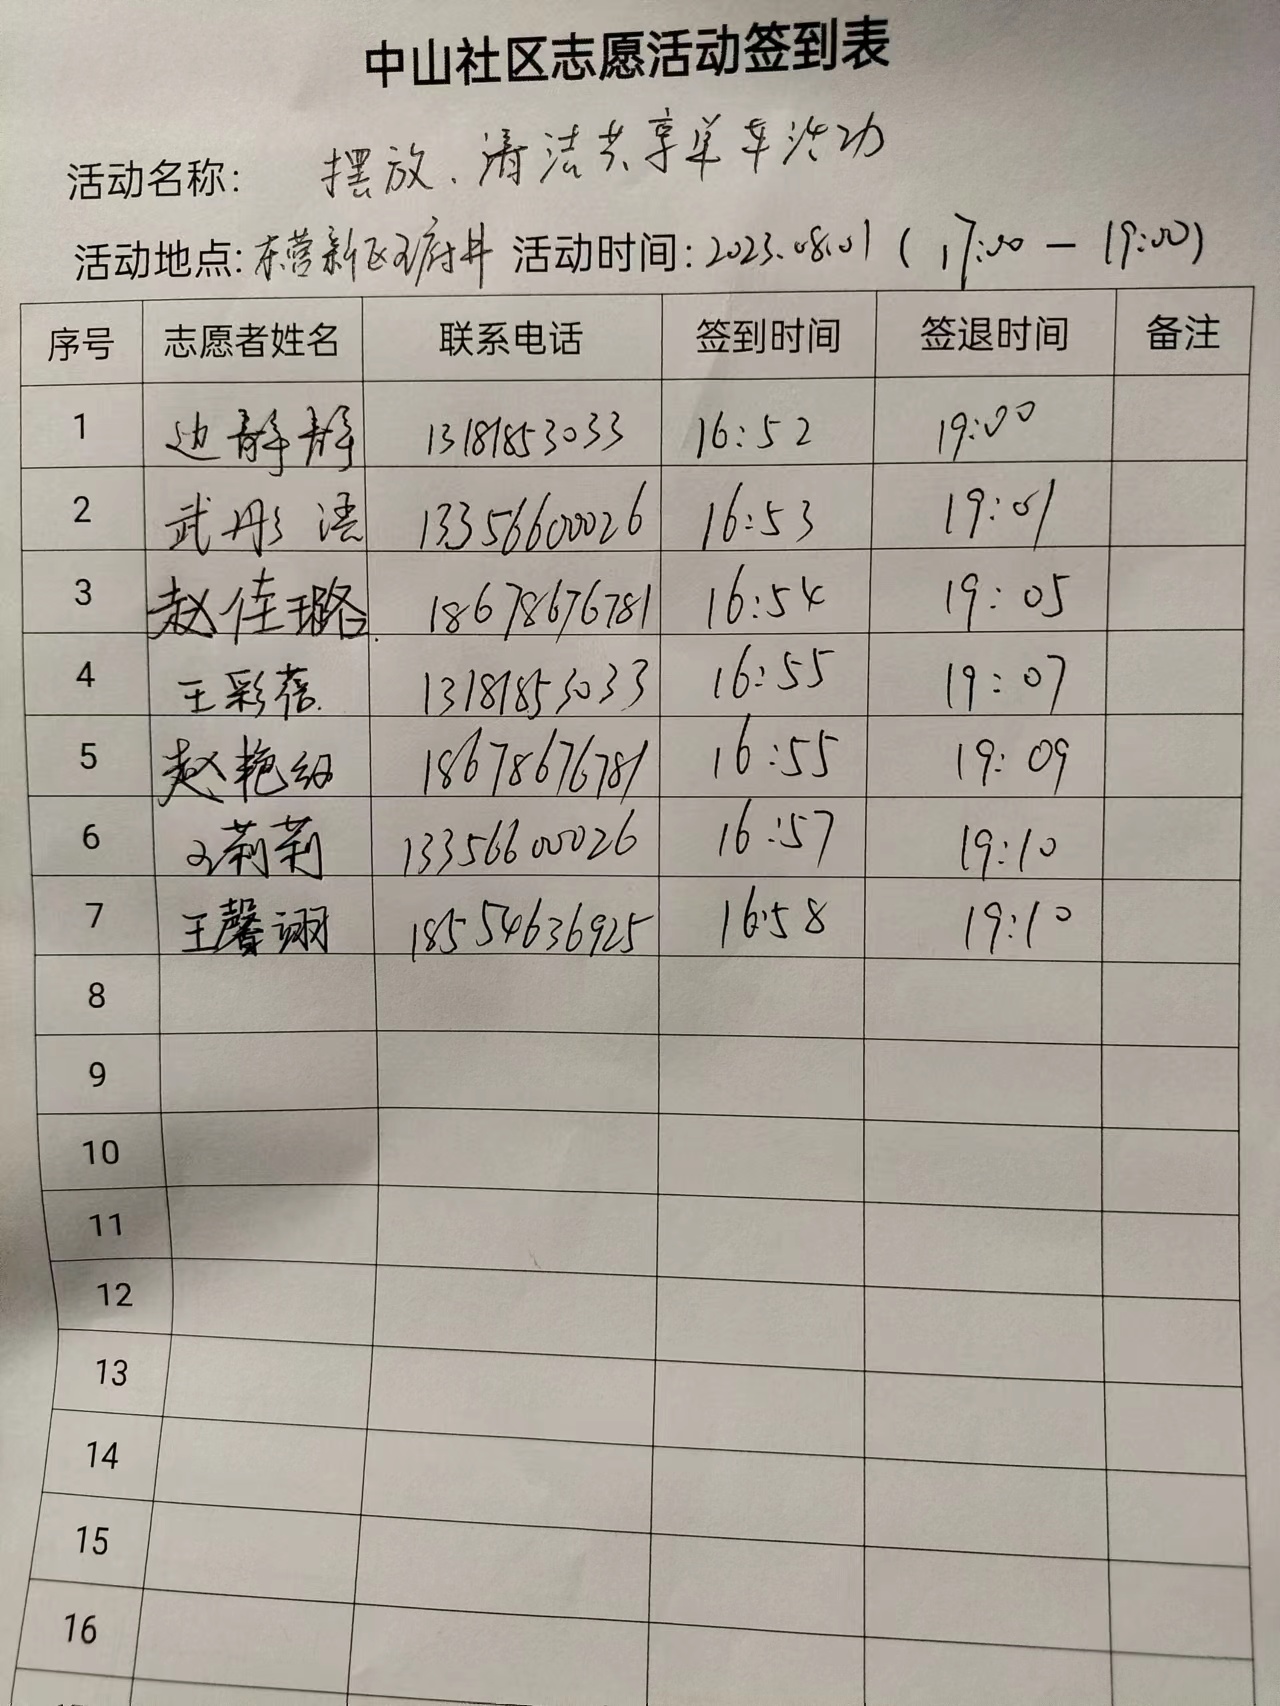 中山社区志愿活动签到表
活动名称: 摆放、清洁共享单车活动
活动地点: 东营新区王府井 活动时间: 2023.08.01 (17:00 — 19:00)
序号 志愿者姓名 联系电话 签到时间 签退时间 备注
1 边静静 13181853033 16:52 19:00
2 武彤语 13356600026 16:53 19:01
3 赵佳璐 18678676781 16:54 19:05
4 王彩蓓 13181853033 16:55 19:07
5 赵艳 18678676781 16:55 19:09
6 莉莉 13356600026 16:57 19:10
7 王馨诩 18554636925 16:58 19:10
8
9
10
11
12
13
14
15
16